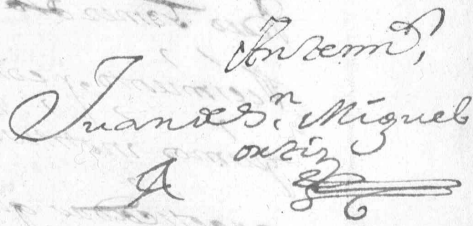 Antem̃
Juan de S.ⁿ Miguel
ortiz